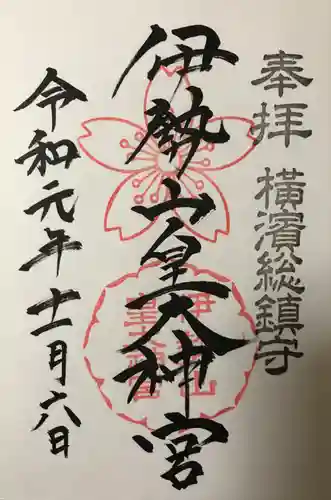 奉拝 横濱総鎮守
伊勢山皇大神宮
令和元年十一月六日